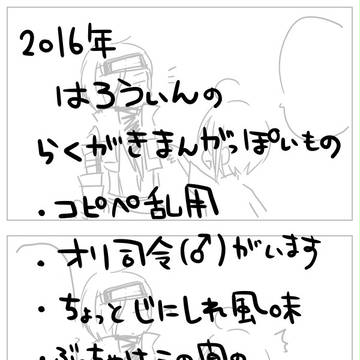 2016年
はろうぃんの
らくがきまんがっぽいもの
・コピペ乱用
・オリ司令(♂)がいます
・ちょっとじにしれ風味